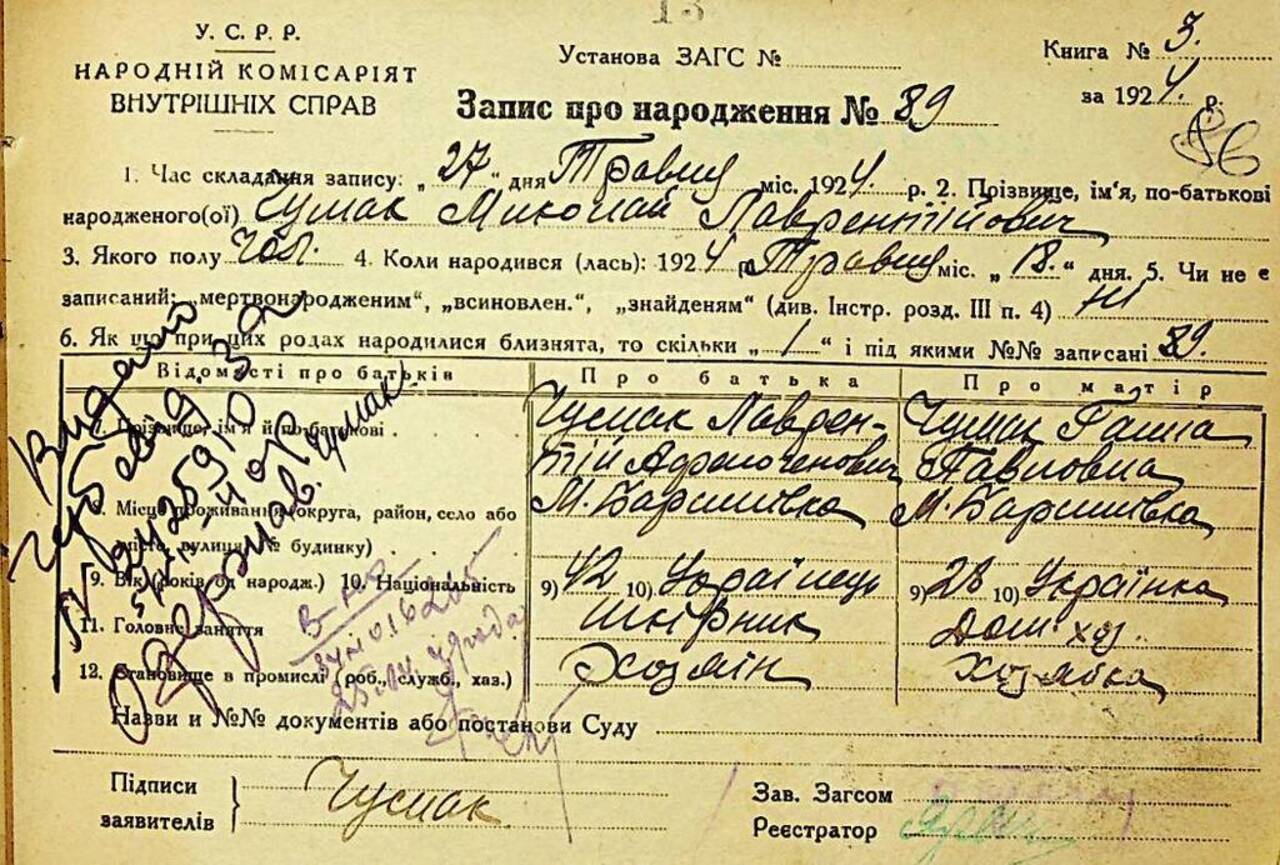 13
У. С. Р. Р.
НАРОДНІЙ КОМІСАРІЯТ
ВНУТРІШНІХ СПРАВ
Установа ЗАГС №
Книга № 3.
за 1924. р.
Запис про народження № 89
1. Час складання запису: „27“ дня Травня міс. 1924. р. 2. Прізвище, ім'я, по-батькові
народженого(ої) Чумак Миколай Лаврентійович
3. Якого полу чол. 4. Коли народився (лась): 1924 р. Травня міс. „18.“ дня. 5. Чи не є
записаний: „мертвонародженим“, „всиновлен.“, „знайденям“ (див. Інстр. розд. III п. 4) Ні
6. Як що при цих родах народилися близнята, то скільки „1“ і під якими №№ записані 89.
Відомості про батьків Про батька Про матір
7. Прізвище, ім'я й по-батькові Чумак Лаврен- Чумак Ганна
тій Павловна
8. Місце проживання (округа, район, село або М. Баришівка М. Баришівка
місто, вулиця, № будинку)
9. Вік (років од народж.) 10. Національність 9) 42 10) Українець 9) 28 10) Українка
11. Головне заняття Дом. хоз.
12. Становище в промислі (роб., служб., хаз.) Хозяїн Хозяйка
Назви и №№ документів або постанови Суду
Виданий
Чумак
Підписи
заявителів
Чумак
Зав. Загсом
Реєстратор